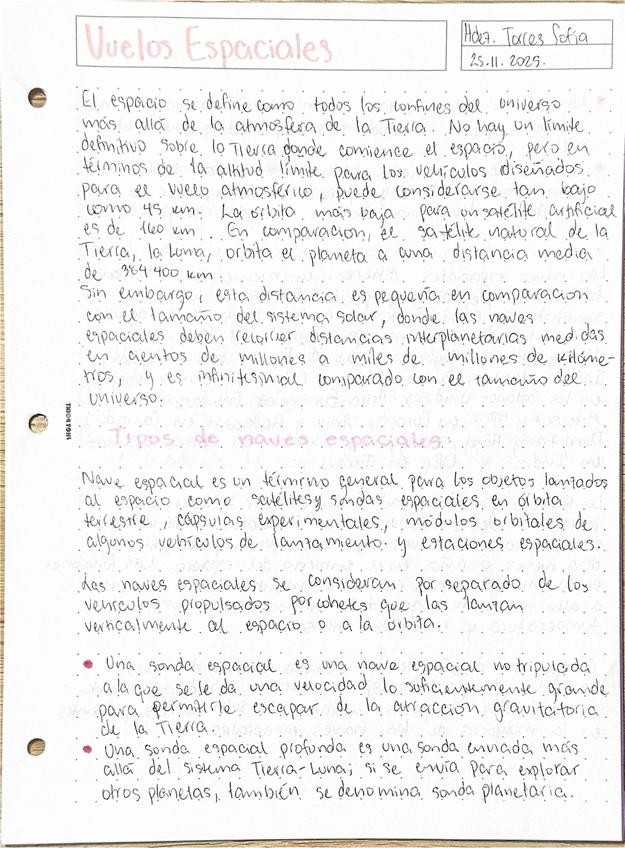 Vuelos Espaciales
Hdez. Torres Sofia
25.11.2025.
El espacio se define como todos los confines del universo
más allá de la atmosfera de la Tierra. No hay un límite
definitivo sobre la Tierra donde comience el espacio, pero en
términos de la altitud límite para los vehículos diseñados
para el vuelo atmosférico, puede considerarse tan bajo
como 45 km. La órbita más baja para un satélite artificial
es de 160 km. En comparación, el satélite natural de la
Tierra, la Luna, orbita el planeta a una distancia media
de 384 400 km.
Sin embargo, esta distancia es pequeña en comparación
con el tamaño del sistema solar, donde las naves
espaciales deben recorrer distancias interplanetarias medidas
en cientos de millones a miles de millones de kilóme-
tros, y es infinitesimal comparado con el tamaño del
universo.
Tipos de naves espaciales.
Nave espacial es un término general para los objetos lanzados
al espacio como satélites y sondas espaciales en órbita
terrestre, cápsulas experimentales, módulos orbitales de
algunos vehículos de lanzamiento y estaciones espaciales.
Las naves espaciales se consideran por separado de los
vehículos propulsados por cohetes que las lanzan
verticalmente al espacio o a la órbita.
• Una sonda espacial es una nave espacial no tripulada
a la que se le da una velocidad lo suficientemente grande
para permitirle escapar de la atracción gravitatoria
de la Tierra.
• Una sonda espacial profunda es una sonda enviada más
allá del sistema Tierra-Luna; si se envía para explorar
otros planetas, también se denomina sonda planetaria.